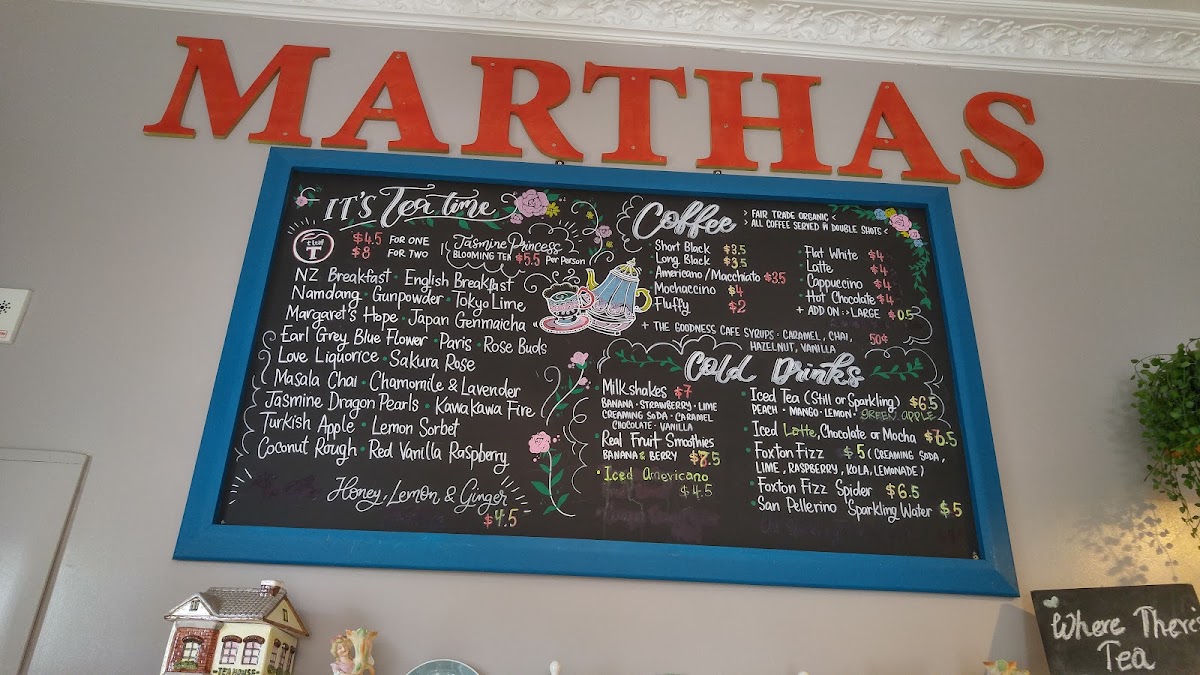 MARTHAS
IT'S Tea time
t leaf T
$4.5 FOR ONE
$8 FOR TWO
Jasmine Princess
BLOOMING TEA $5.5 Per Person
NZ Breakfast · English Breakfast
Namdang · Gunpowder · Tokyo Lime
Margaret's Hope · Japan Genmaicha
Earl Grey Blue Flower · Paris · Rose Buds
Love Liquorice · Sakura Rose
Masala Chai · Chamomile & Lavender
Jasmine Dragon Pearls · Kawakawa Fire
Turkish Apple · Lemon Sorbet
Coconut Rough · Red Vanilla Raspberry
Honey, Lemon & Ginger
$4.5
Coffee
> FAIR TRADE ORGANIC <
> ALL COFFEE SERVED IN DOUBLE SHOTS <
Short Black $3.5
Long Black $3.5
Americano/Macchiato $3.5
Mochaccino $4
Fluffy $2
Flat White $4
Latte $4
Cappuccino $4
Hot Chocolate $4
+ ADD ON :> LARGE $0.5
+ THE GOODNESS CAFE SYRUPS: CARAMEL, CHAI, HAZELNUT, VANILLA 50¢
Cold Drinks
Milkshakes $7
BANANA · STRAWBERRY · LIME
CREAMING SODA · CARAMEL
CHOCOLATE · VANILLA
Real Fruit Smoothies
BANANA & BERRY $8.5
Iced Americano
$4.5
Iced Tea (Still or Sparkling) $6.5
PEACH · MANGO · LEMON · GREEN APPLE
Iced Latte, Chocolate or Mocha $6.5
Foxton Fizz $5 (CREAMING SODA,
LIME, RASPBERRY, KOLA, LEMONADE)
Foxton Fizz Spider $6.5
San Pellerino Sparkling Water $5
TEA HOUSE
Where There's
Tea